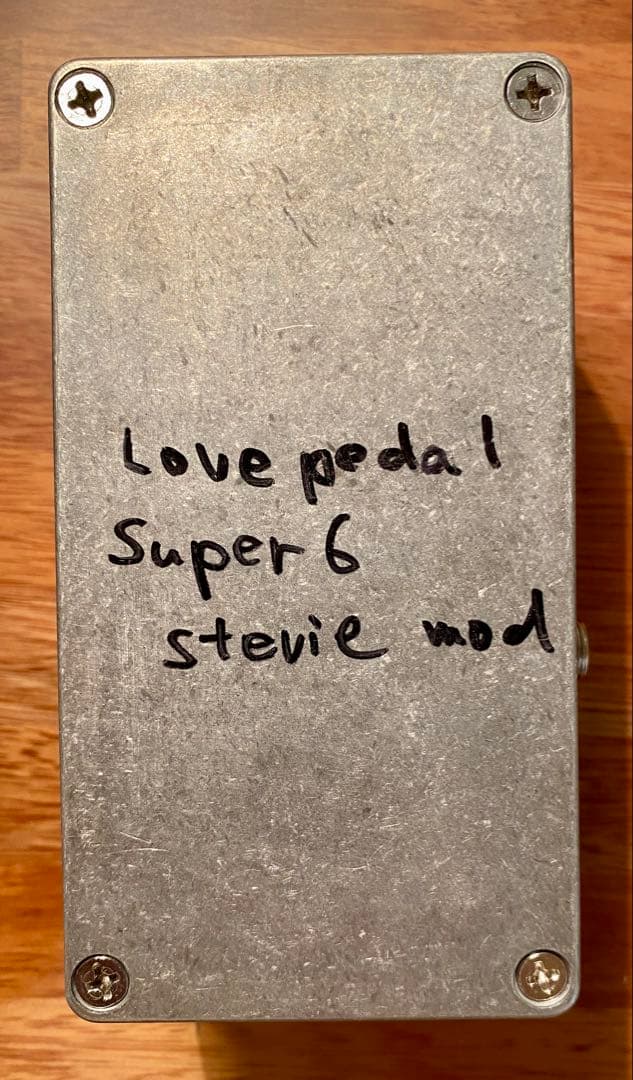 Love pedal
Super 6
stevie mod